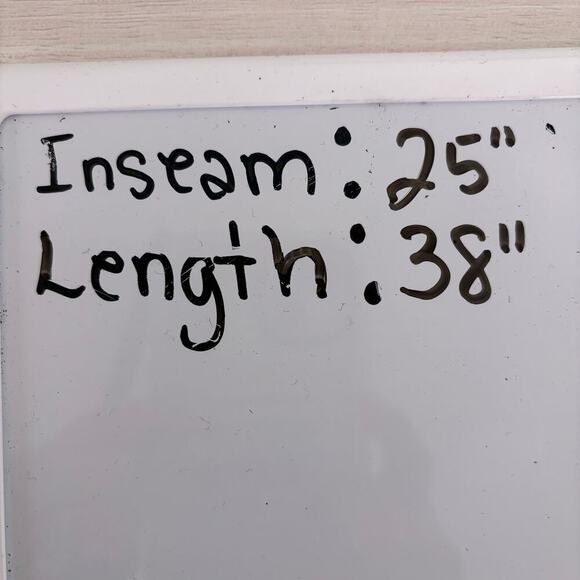 Inseam: 25"
Length: 38"